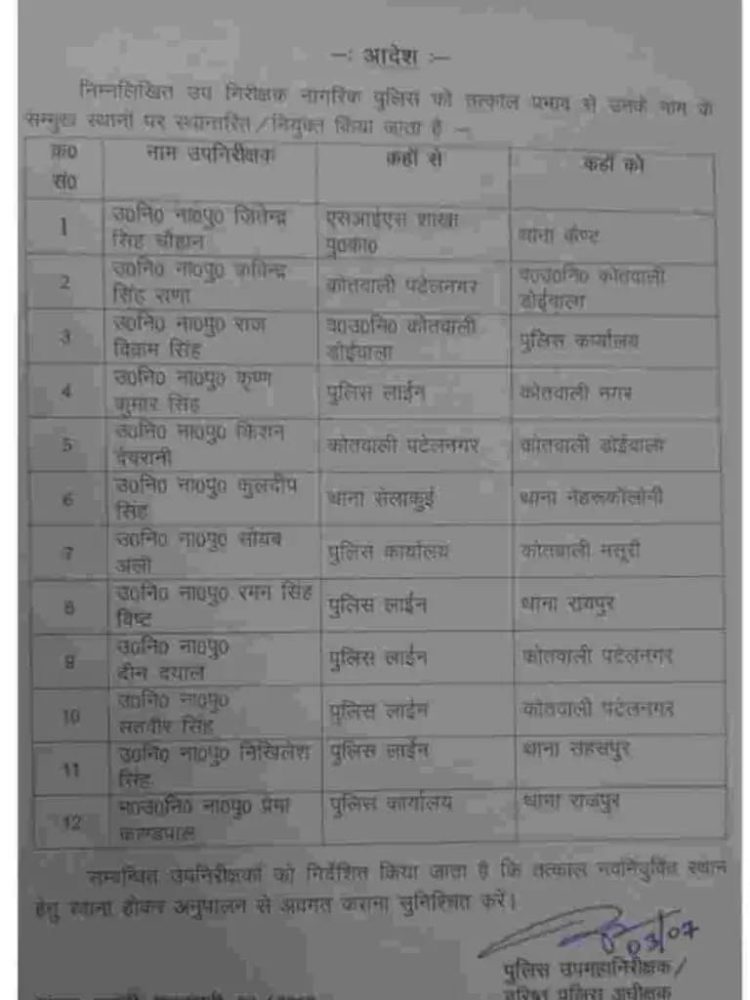 —: आदेश :—
निम्नलिखित उप निरीक्षक नागरिक पुलिस को तत्काल प्रभाव से उनके नाम के
सम्मुख स्थानों पर स्थानान्तरित/नियुक्त किया जाता है –
क्र0 सं0 नाम उपनिरीक्षक कहाँ से कहाँ को
1 उ0नि0 ना0पु0 जितेन्द्र एसआईएस शाखा थाना कैण्ट
सिंह चौहान पु0का0
2 उ0नि0 ना0पु0 कविन्द्र कोतवाली पटेलनगर व0उ0नि0 कोतवाली
सिंह राणा डोईवाला
3 उ0नि0 ना0पु0 राज व0उ0नि0 कोतवाली पुलिस कार्यालय
विक्रम सिंह डोईवाला
4 उ0नि0 ना0पु0 कृष्ण पुलिस लाईन कोतवाली नगर
कुमार सिंह
5 उ0नि0 ना0पु0 किशन कोतवाली पटेलनगर कोतवाली डोईवाला
देवरानी
6 उ0नि0 ना0पु0 कुलदीप थाना सेलाकुई थाना नेहरूकॉलोनी
सिंह
7 उ0नि0 ना0पु0 सोयब पुलिस कार्यालय कोतवाली मसूरी
अली
8 उ0नि0 ना0पु0 रमन सिंह पुलिस लाईन थाना रायपुर
बिष्ट
9 उ0नि0 ना0पु0 पुलिस लाईन कोतवाली पटेलनगर
दीन दयाल
10 उ0नि0 ना0पु0 पुलिस लाईन कोतवाली पटेलनगर
सतवीर सिंह
11 उ0नि0 ना0पु0 निखिलेश पुलिस लाईन थाना सहसपुर
सिंह
12 म0उ0नि0 ना0पु0 प्रेमा पुलिस कार्यालय थाना राजपुर
काण्डपाल
सम्बन्धित उपनिरीक्षकों को निर्देशित किया जाता है कि तत्काल नवनियुक्ति स्थान
हेतु रवाना होकर अनुपालन से अवगत कराना सुनिश्चित करें।
03/07
पुलिस उपमहानिरीक्षक/
वरिष्ठ पुलिस अधीक्षक